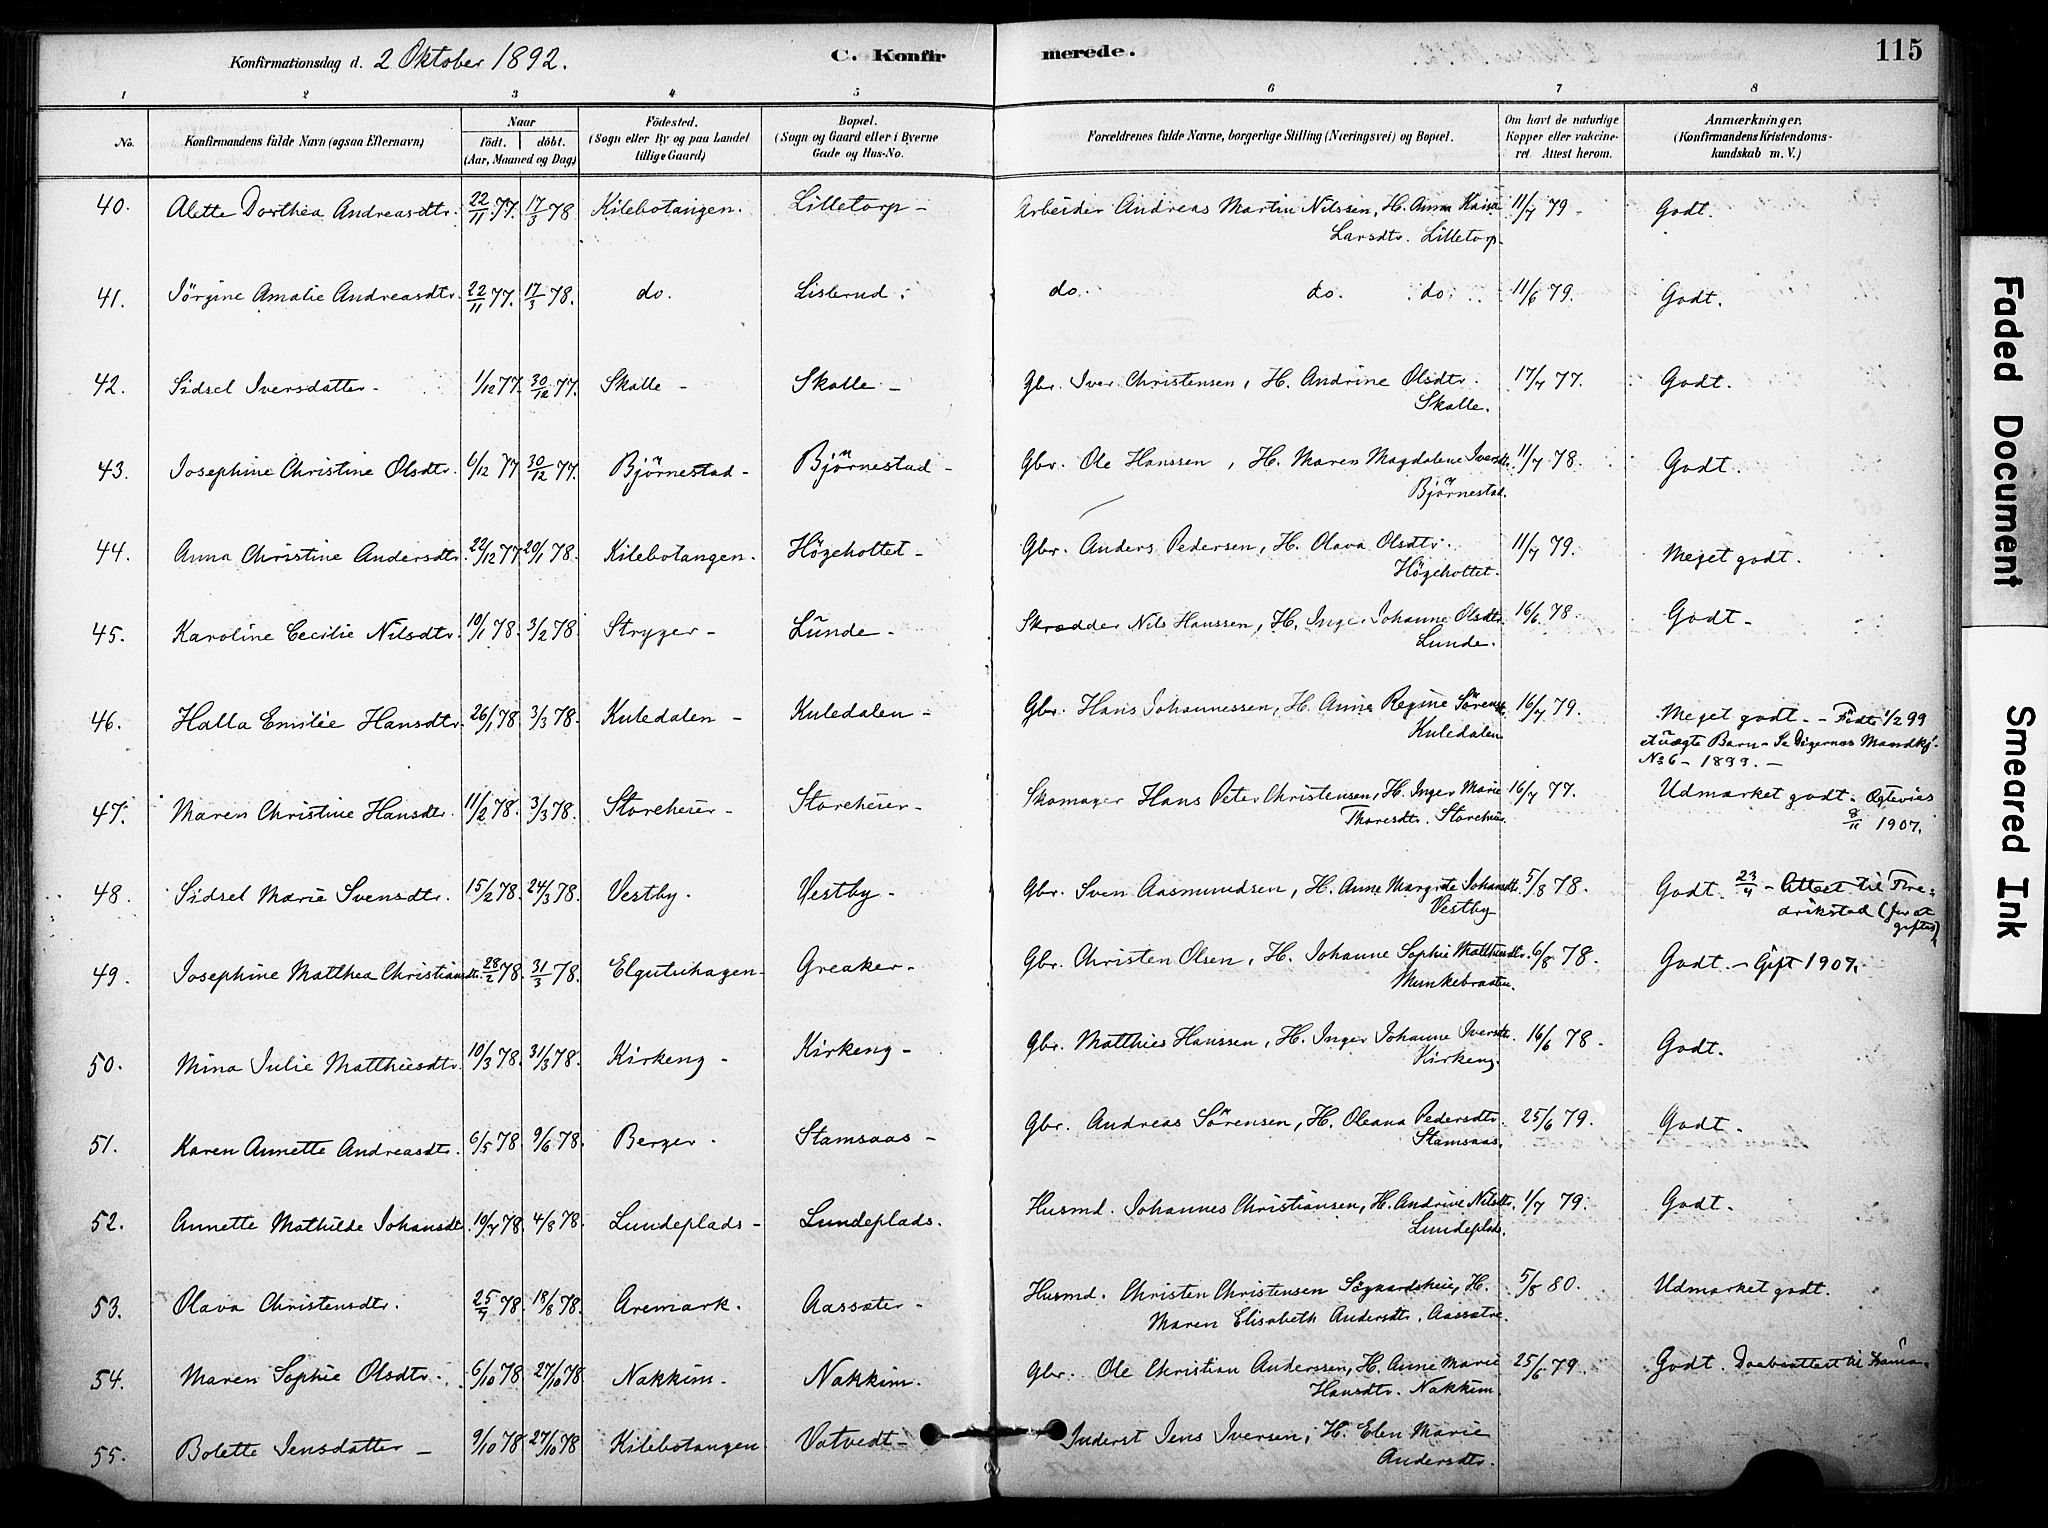 Konfirmationsdag d. 2 Oktober 1892. C. Konfir merede. 115
1 2 3 4 5 6 7 8
No. Konfirmandens fulde Navn (ogsaa Efternavn) Naar født. døbt. (Aar, Maaned og Dag) Fødested. (Sogn eller By og paa Landet tillige Gaard) Bopæl. (Sogn og Gaard eller i Byerne Gade og Hus-No. Forældrenes fulde Navne, borgerlige Stilling (Næringsvei) og Bopæl. Om havt de naturlige Kopper eller vakcineret Attest herom. Anmærkninger. (Konfirmandens Kristendomskundskab m. V.)
40. Alette Dorthea Andreasdtr. 22/11 77. 17/3 78 Kilebotangen. Lilletorp - Arbeider Andreas Martin Nilssen, H. Anna Kaisa 11/7 79 - Godt.
Larsdtr. Lilletorp -
41. Jörgine Amalie Andreasdtr. 22/11 77. 17/3 78. do. Lislerud. do. do. do. 11/6 79. Godt.
42. Sidsel Iversdatter - 1/12 77. 30/12 77. Skolle - Skolle - Gbr. Iver Christensen, H. Andrine Olsdtr. 17/7 77. Godt.
Skolle.
43. Josephine Christine Olsdtr. 6/12 77 30/12 77. Björnestad - Björnestad - Gbr. Ole Hanssen, H. Maren Magdalene Iversdtr. 11/7 78. Godt.
Björnestad.
44. Anna Christine Andersdtr. 22/12 77 20/1 78. Kilebotangen. Högeholtet - Gbr. Anders Pedersen, H. Olava Olsdtr. 11/7 79. Meget godt.
Högeholtet.
45. Karoline Cecilie Nilsdtr. 10/1 78. 3/2 78. Stryger - Lunde - Skrædder Nils Hanssen, H. Inger Johanne Olsdtr. 16/6 78 Godt -
Lunde.
46. Halla Emilie Hansdtr. 26/1 78. 3/3 78. Kuledalen - Kuledalen - Gbr. Hans Johannessen, H. Anne Regine Sörensdtr. 16/7 79. Meget godt. - Födte 1/2 99
Kuledalen et uægte Barn - Se Digernes Mandkj.
No 6 - 1899. -
47. Maren Christine Hansdtr. 11/2 78. 3/3 78. Storeheier - Storeheier - Skomager Hans Peter Christensen, H. Inger Marie 16/7 77. Udmærket godt. Egtevies
Thoresdtr. Storeheier. 8/11 1907.
48. Sidsel Marie Svensdtr. 15/2 78. 24/3 78. Vestby. Vestby - Gbr. Sven Aasmundsen, H. Anne Margrete Johansdtr. 5/8 78. Godt. 23/4 - Attest til Fre-
Vestby drikstad (for at
giftes)
49. Josephine Matthea Christiansdtr. 28/2 78. 31/3 78. Elgetuhagen - Greaker - Gbr. Christen Olsen, H. Johanne Sophie Matthisdtr. 6/8 78. Godt - Gift 1907.
Munkebraaten.
50. Mina Julie Matthiesdtr. 10/3 78. 31/3 78. Kirkeng - Kirkeng - Gbr. Matthies Hanssen, H. Inger Johanne Iversdtr. 16/6 78 - Godt.
Kirkeng.
51. Karen Annette Andreasdtr. 6/5 78. 9/6 78. Berger. Stamsaas - Gbr. Andreas Sörensen, H. Oleana Pedersdtr. 25/6 79. Godt.
Stamsaas.
52. Annette Mathilde Johansdtr. 10/7 78. 4/8 78. Lundeplads - Lundeplads. Husmd. Johannes Christiansen, H. Andrine Nilsdtr. 1/7 79. Godt.
Lundeplads.
53. Olava Christensdtr. 25/7 78. 18/8 78. Aremark. Aassæter - Husmd. Christen Christensen Sögaardsheie, H. 5/8 80. Udmærket godt.
Maren Elisabeth Andersdtr. Aassætre.
54. Maren Sophie Olsdtr. 6/10 78. 27/10 78. Nakkim. Nakkim. Gbr. Ole Christian Anderssen, H. Anne Marie 25/6 79. Godt. Daabsattest til
Hansdtr. Nakkim.
55. Bolette Jensdatter - 9/10 78 27/10 78 Kilebotangen Vatvedt - Inderst Jens Iversen, H. Elen Marie
Andersdtr.
Faded Document
Smeared Ink